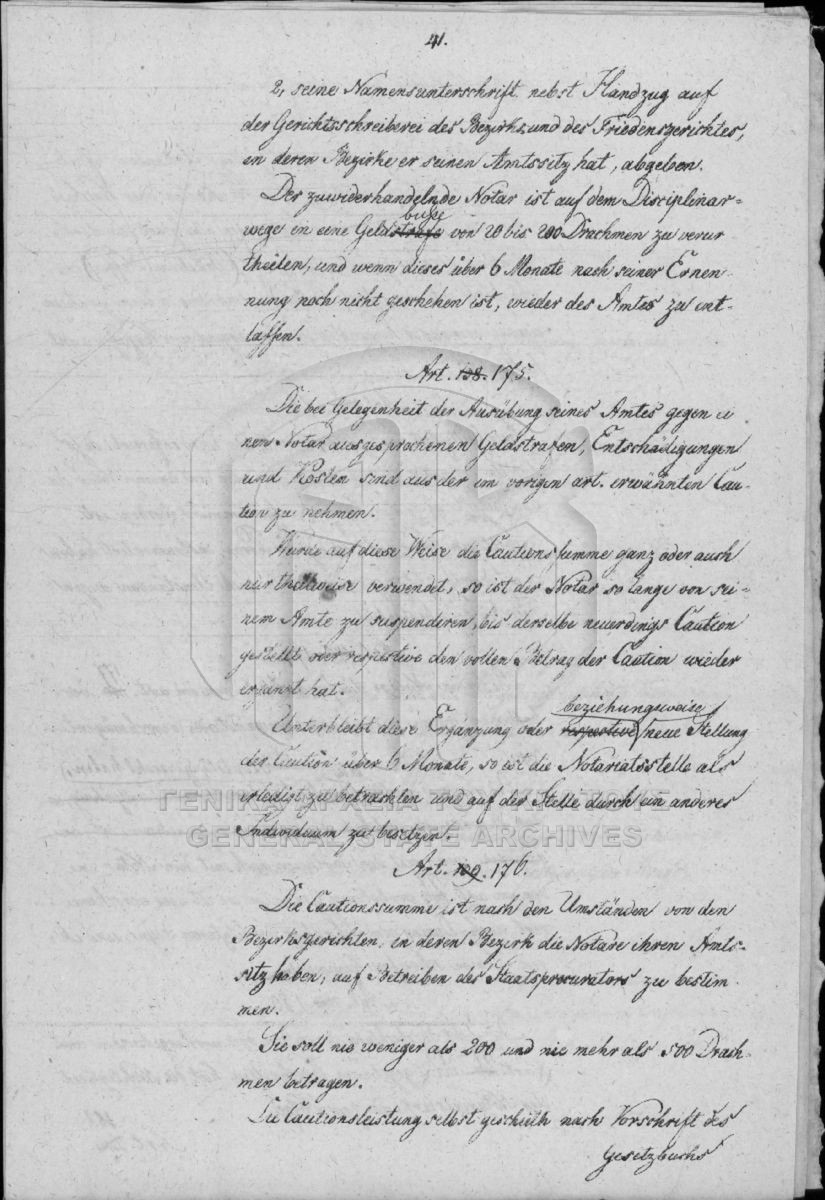 41.
2, seine Namensunterschrift nebst Handzug auf
der Gerichtsschreiberei des Bezirks und des Friedensgerichtes,
in deren Bezirke er seinen Amtssitz hat, abgeben.
Der zuwiderhandelnde Notar ist auf dem Disciplinar=
buße
wege in eine Geldstrafe von 20 bis 200 Drachmen zu verur
theilen, und wenn dieses über 6 Monate nach seiner Ernen-
nung noch nicht geschehen ist, wieder des Amtes zu ent-
lassen.
Art. 138. 175.
Die bei Gelegenheit der Ausübung seines Amtes gegen ei
nen Notar ausgesprochenen Geldstrafen, Entschädigungen
und Kosten sind aus der im vorigen art. erwähnten Cau-
tion zu nehmen.
Wurde auf diese Weise die Cautionssumme ganz oder auch
nur theilweise verwendet, so ist der Notar so lange von sei-
nem Amte zu suspendiren, bis derselbe neuerdings Caution
gestellt oder respective den vollen Betrag der Caution wieder
ergänzt hat.
beziehungsweise
Unterbleibt diese Ergänzung oder respective neue Stellung
der Caution über 6 Monate, so ist die Notariatsstelle als
erledigt zu betrachten und auf der Stelle durch ein anderes
Individuum zu besetzen.
ΓΕΝΙΚΑ ΑΡΧΕΙΑ ΤΟΥ ΚΡΑΤΟΥΣ
GENERAL STATE ARCHIVES
Art. 139. 176.
Die Cautionssumme ist nach den Umständen von den
Bezirksgerichten, in deren Bezirk die Notare ihren Amts-
sitz haben, auf Betreiben des Staatsprocurators zu bestim-
men.
Sie soll nie weniger als 200 und nie mehr als 500 Drach-
men betragen.
Die Cautionsleistung selbst geschieht nach Vorschrift des
Gesetzbuchs